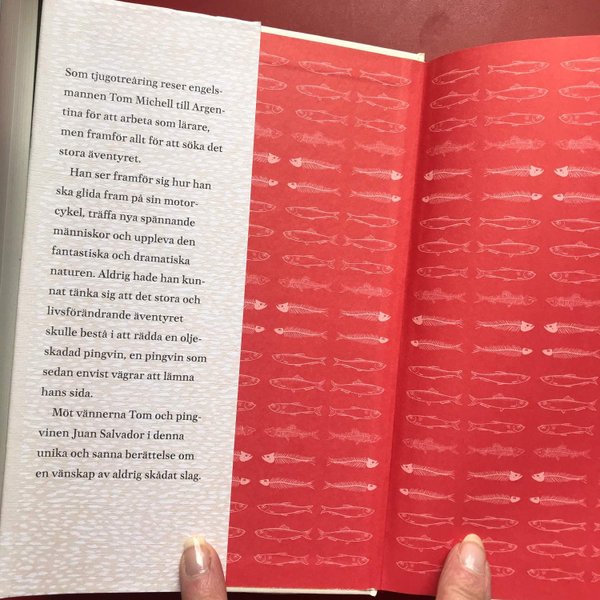 Som tjugotreåring reser engels-
mannen Tom Michell till Argen-
tina för att arbeta som lärare,
men framför allt för att söka det
stora äventyret.
Han ser framför sig hur han
ska glida fram på sin motor-
cykel, träffa nya spännande
människor och uppleva den
fantastiska och dramatiska
naturen. Aldrig hade han kun-
nat tänka sig att det stora och
livsförändrande äventyret
skulle bestå i att rädda en olje-
skadad pingvin, en pingvin som
sedan envist vägrar att lämna
hans sida.
Möt vännerna Tom och ping-
vinen Juan Salvador i denna
unika och sanna berättelse om
en vänskap av aldrig skådat slag.